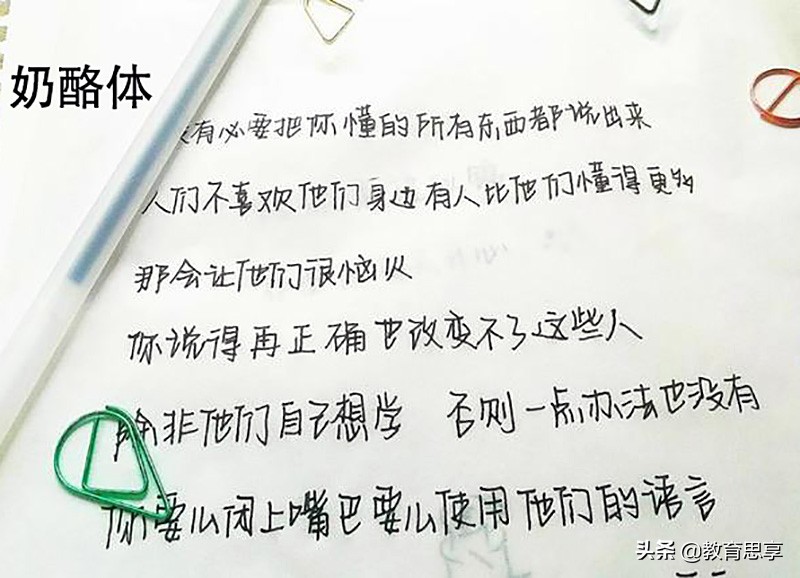 奶酪体
没有必要把你懂的所有东西都说出来
人们不喜欢他们身边有人比他们懂得更多
那会让他们很恼火
你说得再正确也改变不了这些人
除非他们自己想学 否则一点办法也没有
你要么闭上嘴巴要么使用他们的语言
头条 @教育思享